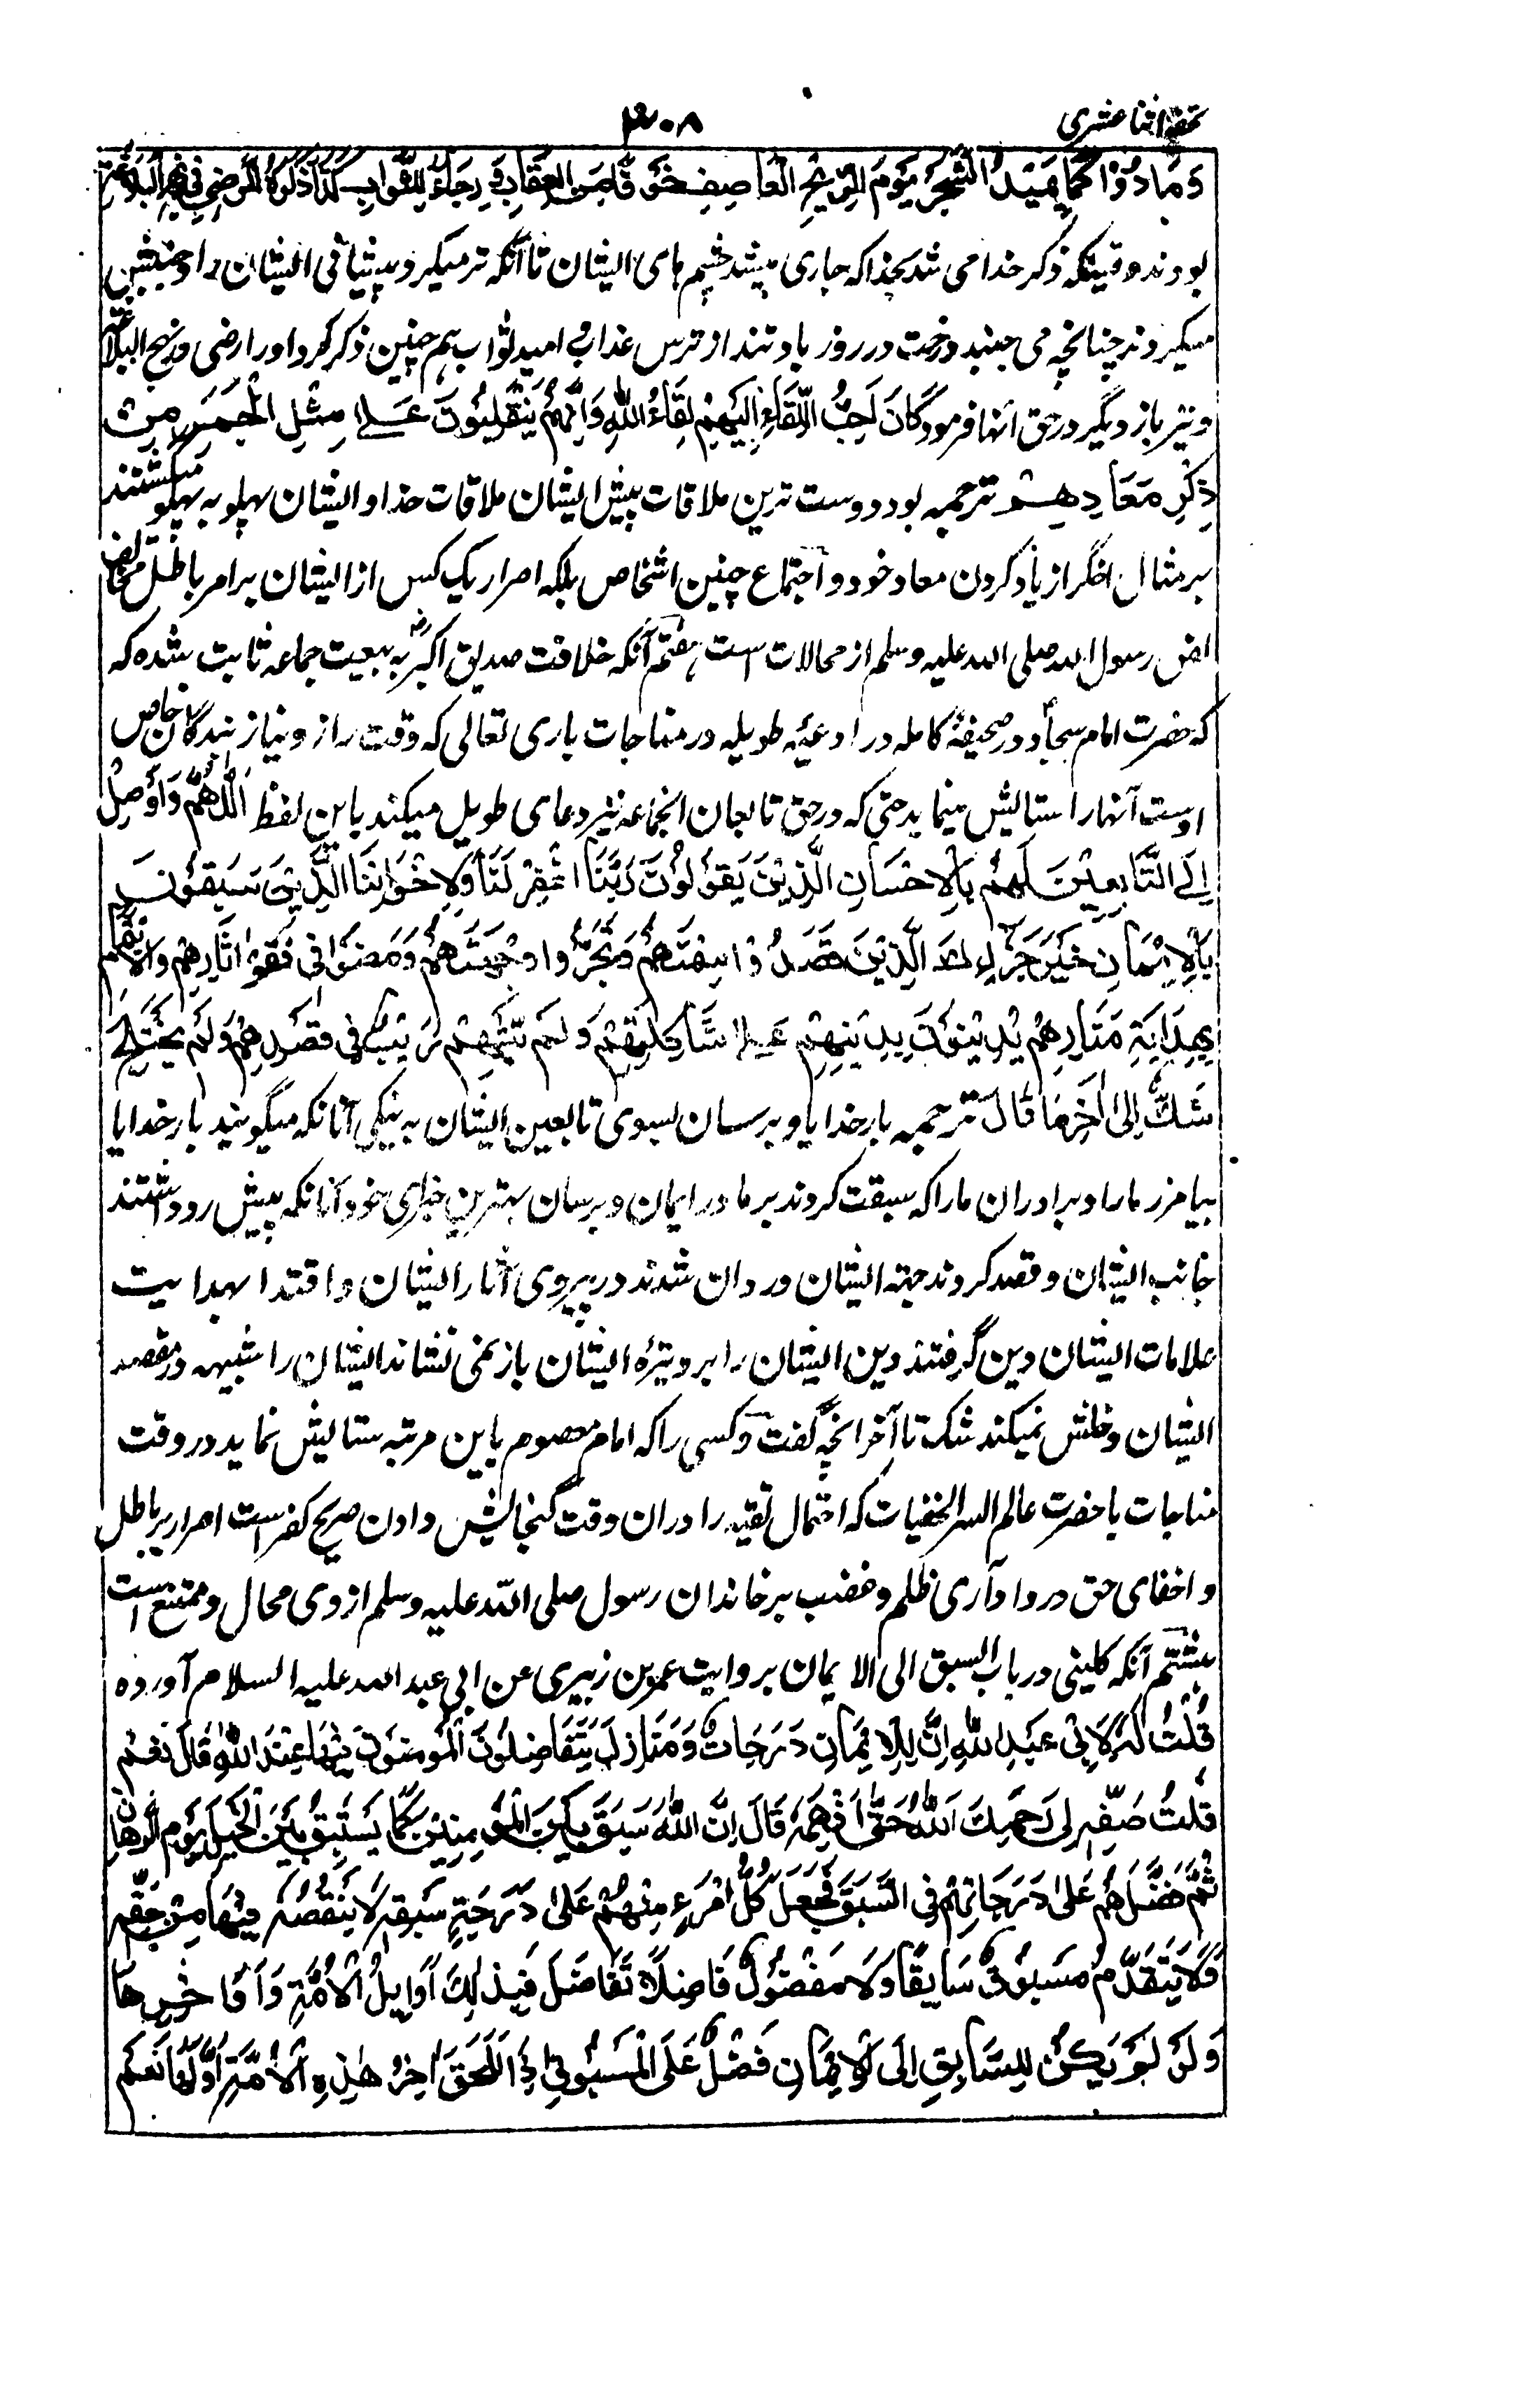 تحفه اثنا عشری
۳۰۸
وَمَادُوْا كَمَا يَمِيْدُ الشَّجَرُ يَوْمَ الرِّيْحِ الْعَاصِفِ خَوْفًا مِنَ الْعِقَابِ وَرَجَاءً لِلثَّوَابِ كَذَا ذَكَرَهُ الرَّضِي فِي نَهْجِ الْبَلَاغَةِ
بودند وقتیکه ذکر خدا می شد بخدا که جاری میشد چشم های ایشان تا آنکه تر میکرد پیشانی ایشان را و جنبش
میکردند چنانچه می جنبد درخت در روز باد تند از ترس عذاب و امید ثواب هم چنین ذکر کرد اورا رضی در نهج البلاغه
و نیز باز دیگر در حق آنها فرمود كَانَ اَحَبُّ اللِّقَاءِ اِلَيْهِمْ لِقَاءُ اللّٰهِ وَاِنَّهُمْ يَتَقَلَّبُوْنَ عَلٰی مِثْلِ الْجَمَرِ مِنْ
ذِكْرِ مَعَادِهِمْ ترجمه بود دوست ترین ملاقات پیش ایشان ملاقات خدا و ایشان پهلو به پهلو میگشتند
بر مثال اخگر از یاد کردن معاد خود و اجتماع چنین اشخاص بلکه اصرار یک کس از ایشان بر امر باطل مخالف
نص رسول الله صلی الله علیه وسلم از محالات است هفتم آنکه خلافت صدیق اکبر رض به بیعت جماعه ثابت شده که
که حضرت امام سجاد در صحیفه کامله در ادعیه طویله در مناجات باری تعالی که وقت راز و نیاز بندگان خاص
اوست آنها را ستایش مینماید حتی که در حق تابعان انجماعه نیز دعای طویل میکند باین لفظ اَللّٰهُمَّ وَاَوْصِلْ
اِلَی التَّابِعِيْنَ لَهُمْ بِالْاِحْسَانِ الَّذِيْنَ يَقُوْلُوْنَ رَبَّنَا اغْفِرْ لَنَا وَلِاِخْوَانِنَا الَّذِيْنَ سَبَقُوْنَا
بِالْاِيْمَانِ خَيْرَ جَزَائِكَ الَّذِيْنَ قَصَدُوْا سَمْتَهُمْ وَتَحَرَّوْا وِجْهَتَهُمْ وَمَضَوْا فِی قَفْوِ اٰثَارِهِمْ وَالْاِئْتِمَامِ
بِهِدَايَةِ مَنَارِهِمْ يَدِيْنُوْنَ بِدِيْنِهِمْ عَلٰی شَاكِلَتِهِمْ وَلَمْ يَثْنِهِمْ رَيْبٌ فِی قَصْدِهِمْ وَلَمْ يَخْتَلِجْ
شَكٌّ اِلٰی اٰخِرِ مَا قَالَ ترجمه بار خدایا و برسان بسوی تابعین ایشان به نیکی آنانکه میگویند بار خدایا
بیامرز مارا و برادران مارا که سبقت کردند بر ما در ایمان و برسان بهترین جزای خود آنانکه پیش رو داشتند
جانب ایشان و قصد کردند جهته ایشان و روان شدند در پیروی آثار ایشان و اقتدا بهدایت
علامات ایشان دین گرفتند دین ایشان را بر وتیره ایشان باز نمی نشاند ایشان را شبهه در مقصد
ایشان و خلش نمیکند شک تا آخر انچه گفت و کسی را که امام معصوم باین مرتبه ستایش نماید در وقت
مناجات با حضرت عالم السر الخفیات که احتمال تقیه را دران وقت گنجایش دادن صریح کفر است اصرار بر باطل
و اخفای حق و رواداری ظلم و غضب بر خاندان رسول صلی الله علیه وسلم از وی محال و ممتنع است
هشتم آنکه کلینی در باب السبق الی الایمان بروایت عمر بن زبیری عن ابی عبد الله علیه السلام آورده
قُلْتُ لَهُ لِاَبِیْ عَبْدِ اللّٰهِ اِنَّ لِلْاِيْمَانِ دَرَجَاتٌ وَمَنَازِلَ يَتَفَاضَلُوْنَ الْمُؤْمِنُوْنَ فِيْهَا عِنْدَ اللّٰهِ قَالَ نَعَمْ
قُلْتُ صِفْهُ لِی رَحِمَكَ اللّٰهُ حَتّٰی اَفْهَمَهُ قَالَ اِنَّ اللّٰهَ سَبَّقَ بَيْنَ الْمُؤْمِنِيْنَ كَمَا يُسْتَبَقُ بَيْنَ الْخَيْلِ يَوْمَ الرِّهَانِ
ثُمَّ فَضَّلَهُمْ عَلٰی دَرَجَاتِهِمْ فِی السَّبَقِ فَجَعَلَ كُلَّ امْرَءٍ مِنْهُمْ عَلٰی دَرَجَةِ سَبَقِهِ لَا يَنْقُصُهُ فِيْهَا مِنْ حَقِّهِ
وَلَا يَتَقَدَّمُ مَسْبُوْقٌ سَابِقًا وَلَا مَفْضُوْلٌ فَاضِلًا تَفَاضَلَ فَبِذٰلِكَ اَوَائِلُ الْاُمَّةِ وَاَوَاخِرُهَا
وَلَوْ لَمْ يَكُنْ لِلسَّابِقِ اِلَی الْاِيْمَانِ فَضْلٌ عَلَی الْمَسْبُوْقِ اِذًا لَلَحِقَ اٰخِرُ هٰذِهِ الْاُمَّةِ اَوَّلَهَا نَعَمْ